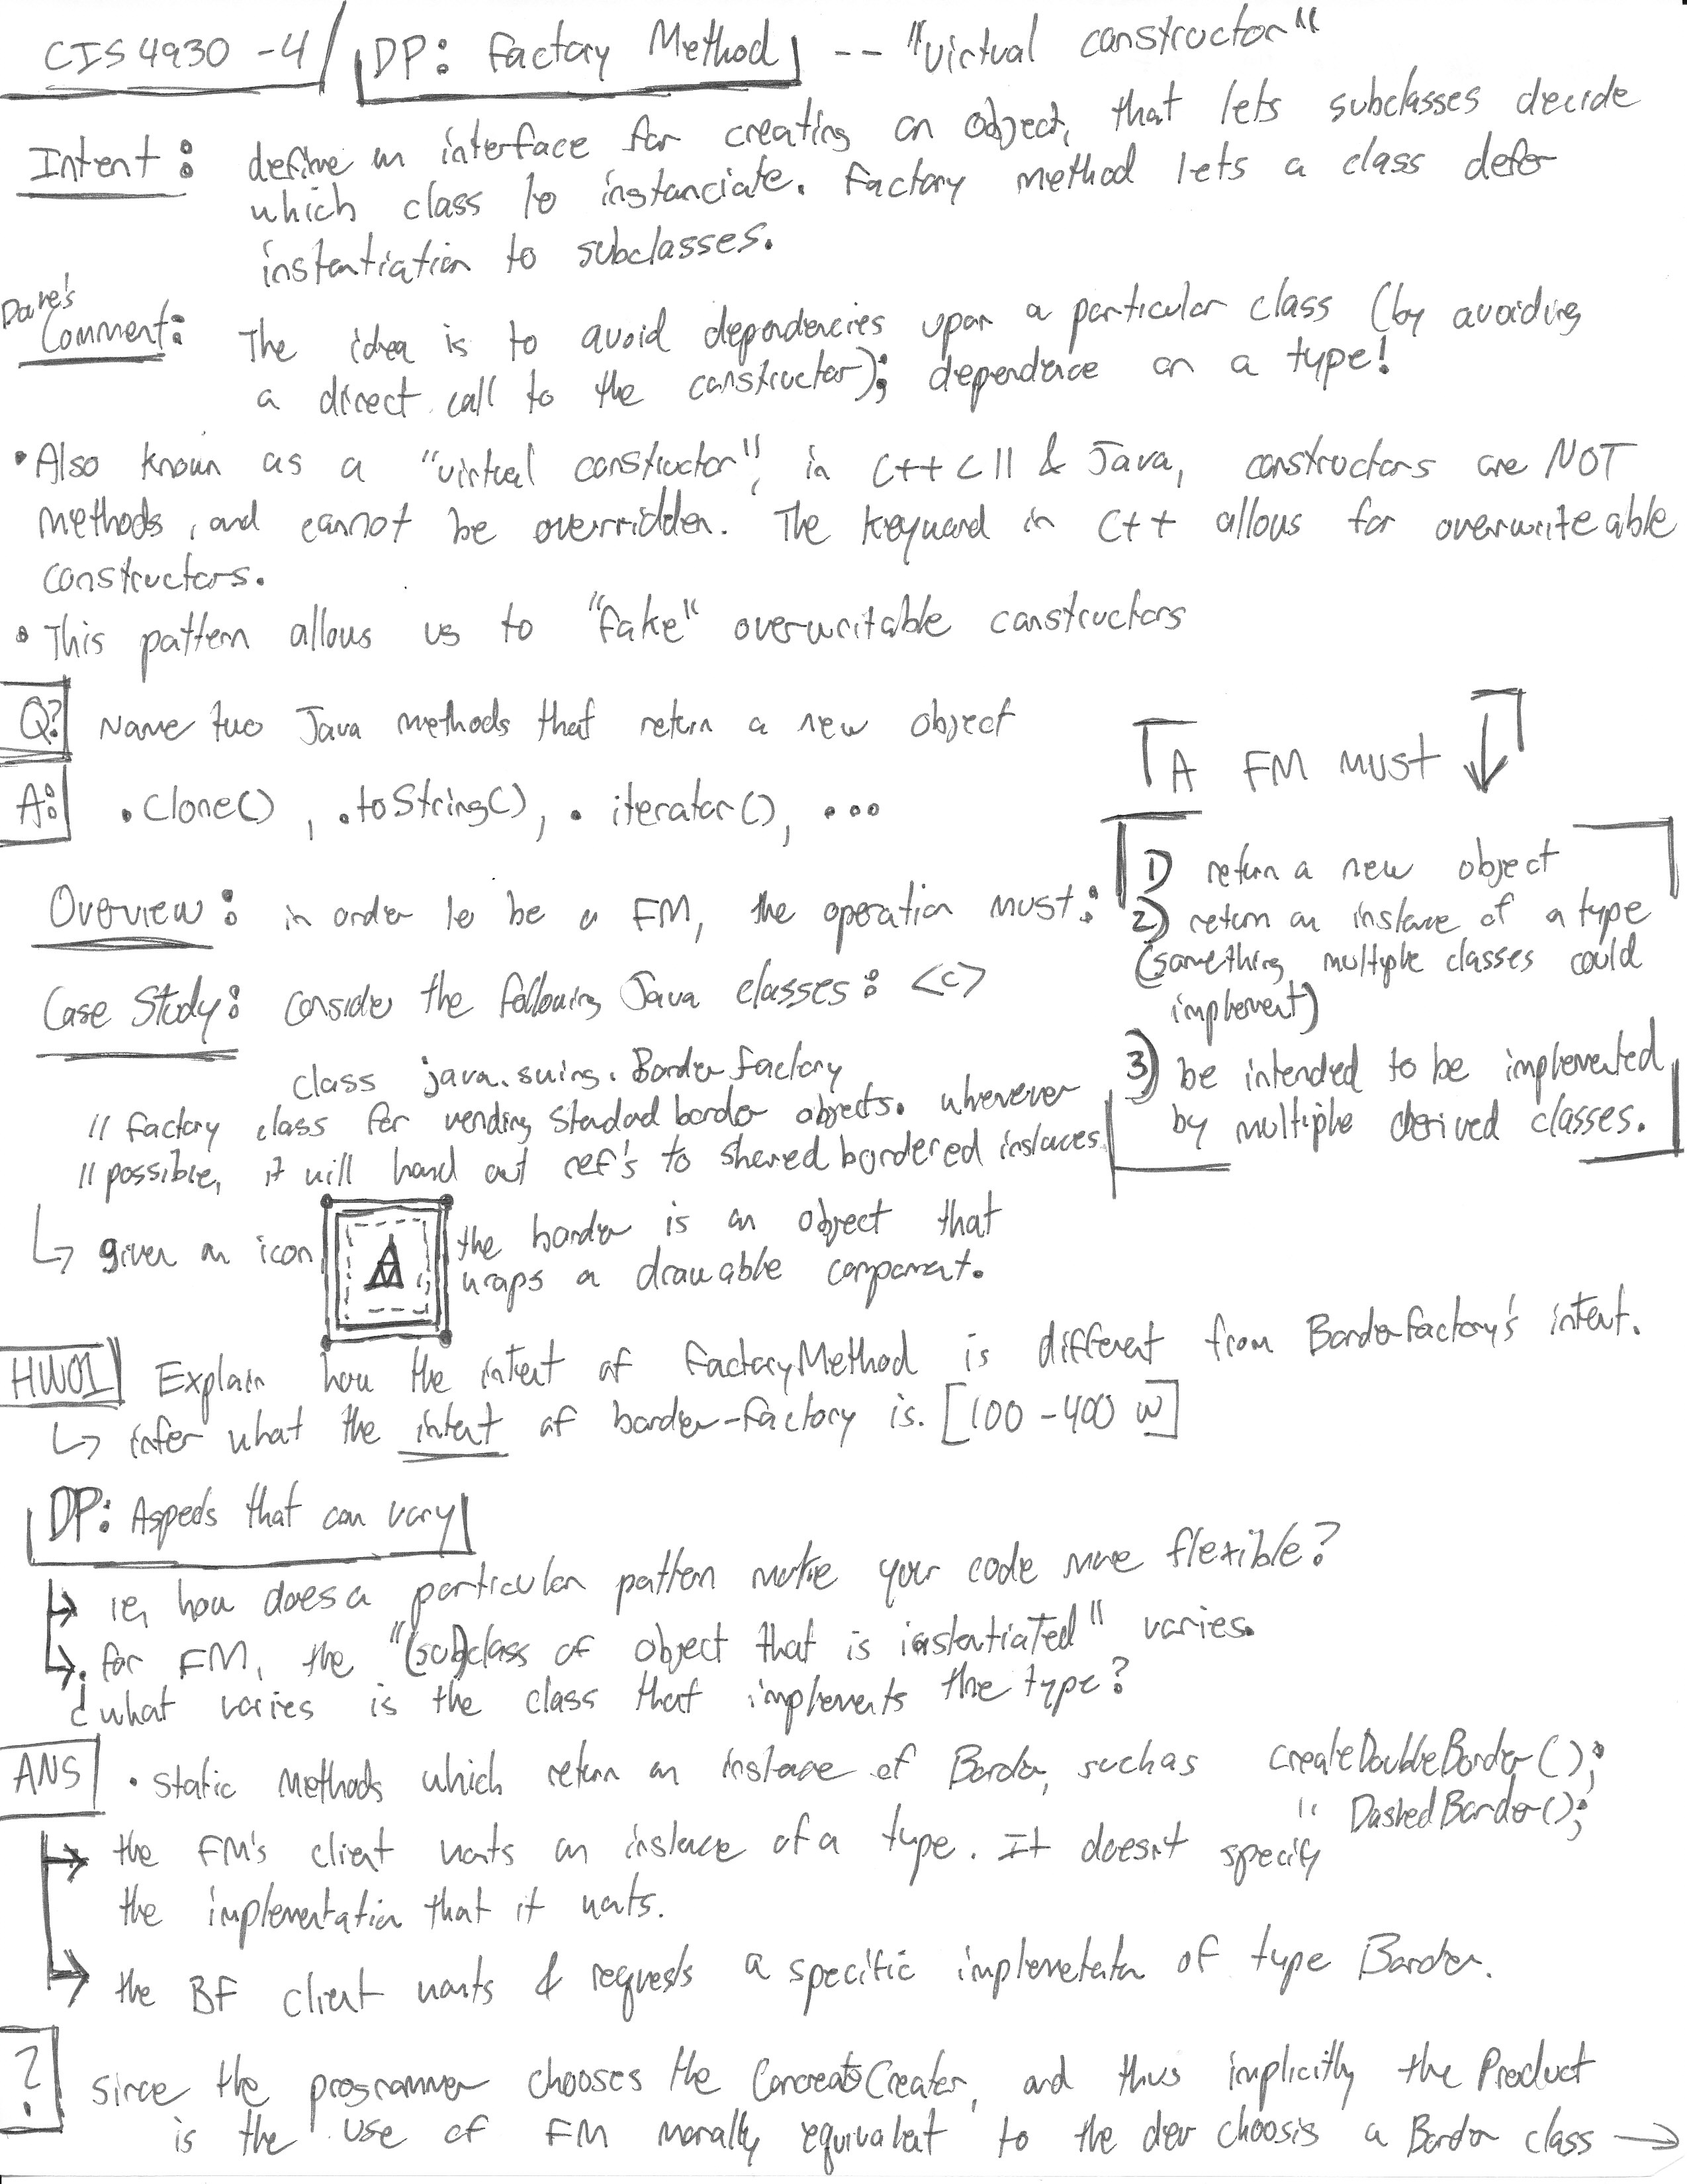 CIS4930-4/ DP: Factory Method -- "virtual constructor"
Intent: define an interface for creating an object, that lets subclasses decide
which class to instanciate. Factory method lets a class defer
instantiation to subclasses.
Dave's
Comment: The idea is to avoid dependencies upon a particular class (by avoiding
a direct call to the constructor); dependence on a type!
• Also known as a "virtual constructor", in C++ C11 & Java, constructors are NOT
methods, and cannot be overridden. The keyword in C++ allows for overwriteable
constructors.
• This pattern allows us to "fake" overwritable constructors
Q? Name two Java methods that return a new object
A: .clone(), .toString(), .iterator(), ...
A FM MUST ↓
Overview: in order to be a FM, the operation must:
1) return a new object
2) return an instance of a type
(something multiple classes could
implement)
3) be intended to be implemented
by multiple derived classes.
Case Study: consider the following Java classes: <c>
class java.swing.BorderFactory
// factory class for vending standard border objects. wherever
// possible, it will hand out ref's to shared bordered instances
↳ given an icon, the border is an object that
wraps a drawable component.
HW01 Explain how the intent of FactoryMethod is different from BorderFactory's intent.
↳ infer what the intent of border-factory is. [100-400 W]
DP: Aspects that can vary
→ ie, how does a particular pattern make your code more flexible?
→. for FM, the "(sub)class of object that is instantiated" varies.
¿what varies is the class that implements the type?
ANS • static methods which return an instance of Border, such as createDoubleBorder();
" DashedBorder();
→ the FM's client wants an instance of a type. It doesn't specify
the implementation that it wants.
→ the BF client wants & requests a specific implemetation of type Border.
? since the programmer chooses the ConcreateCreater, and thus implicitly the Product
is the use of FM morally equivalent to the dev choosis a Border class →